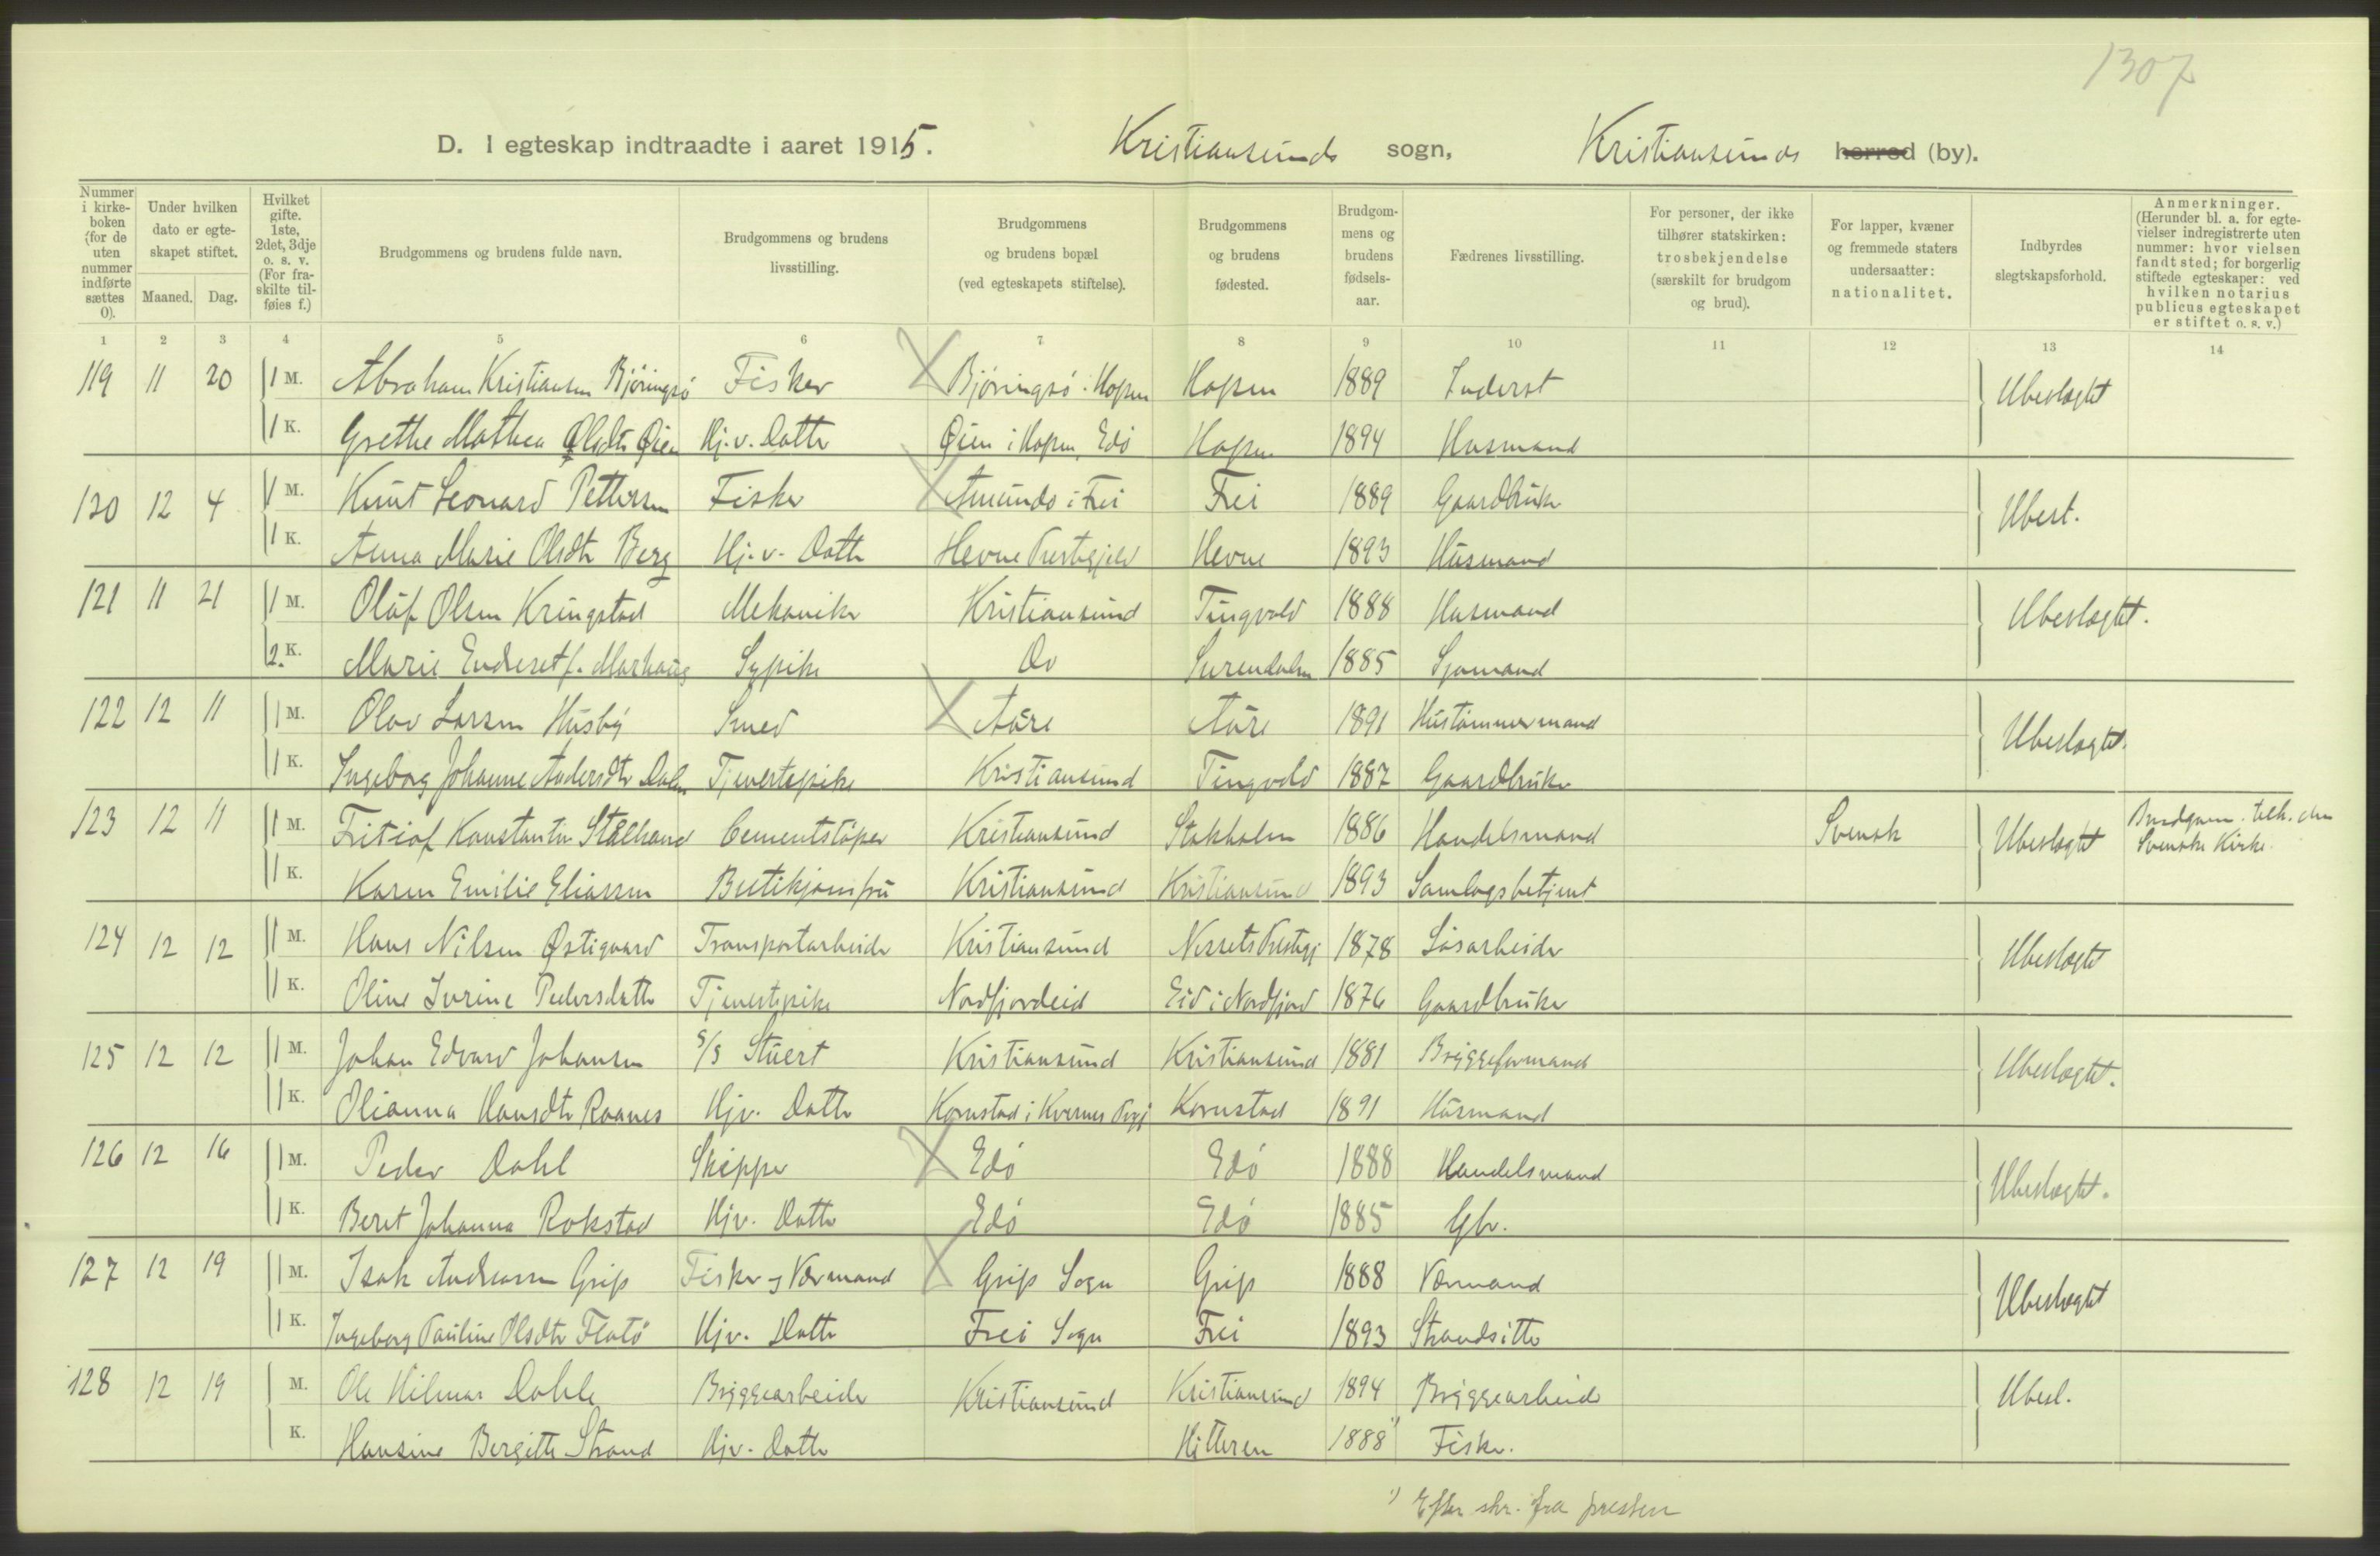 1307
D. I egteskap indtraadte i aaret 1915. Kristiansunds sogn, Kristiansunds herred (by).
Nummer i kirkeboken (for de uten nummer indførte sættes 0). | Under hvilken dato er egteskapet stiftet. Maaned. Dag. | Hvilket gifte. 1ste, 2det, 3dje o. s. v. (For fraskilte tilføies f.) | Brudgommens og brudens fulde navn. | Brudgommens og brudens livsstilling. | Brudgommens og brudens bopæl (ved egteskapets stiftelse). | Brudgommens og brudens fødested. | Brudgommens og brudens fødselsaar. | Fædrenes livsstilling. | For personer, der ikke tilhører statskirken: trosbekjendelse (særskilt for brudgom og brud). | For lapper, kvæner og fremmede staters undersaatter: nationalitet. | Indbyrdes slegtskapsforhold. | Anmerkninger. (Herunder bl. a. for egtevielser indregistrerte uten nummer: hvor vielsen fandt sted; for borgerlig stiftede egteskaper: ved hvilken notarius publicus egteskapet er stiftet o. s. v.)
1 2 3 4 5 6 7 8 9 10 11 12 13 14
119 11 20 1 M. Abraham Kristiansen Bjøringsø Fisker Bjøringsø Hopen Hopen 1889 Inderst Ubeslægtet
1 K. Grethe Mathea Olsdtr Øien Hj.v. Datter Øien i Hopen, Edø Hopen 1894 Husmand
120 12 4 1 M. Knut Leonard Pettersen Fisker Amundø i Frei Frei 1889 Gaardbruker Ubesl.
1 K. Anna Marie Olsdtr Berg Hj.v. Datter Hevne Prestegjeld Hevne 1893 Husmand
121 11 21 1 M. Oluf Olsen Kringstad Mekaniker Kristiansund Tingvold 1888 Husmand Ubeslægtet.
2. K. Marie Enderset f. Marhaug Sypike Do Surendalen 1885 Sjømand
122 12 11 1 M. Olav Larsen Husby Smed Aure Aure 1891 Hustømmermand Ubeslægtet.
1 K. Ingeborg Johanne Andersdtr Dalen Tjenestepike Kristiansund Tingvold 1887 Gaardbruker
123 12 11 1 M. Fritiof Konstantin Stålhand Cementstøper Kristiansund Stokholm 1886 Handelsmand Svensk Ubeslægtet Brudgom. tilh. den
Svenske Kirke.
1 K. Karen Emilie Eliassen Butikjomfru Kristiansund Kristiansund 1893 Samlagsbetjent
124 12 12 1 M. Hans Nilsen Østigaard Transportarbeider Kristiansund Nessets Prestegj 1878 Løsarbeider Ubeslægtet
1 K. Oline Ivrine Pedersdatter Tjenestepike Nordfjordeid Eid i Nordfjord 1876 Gaardbruker
125 12 12 1 M. Johan Edvard Johansen S/S Stuert Kristiansund Kristiansund 1881 Bryggeformand Ubeslægtet.
1 K. Olianna Hansdtr Raanes Hjv. Datter Kornstad i Kvernes Prgj Kornstad 1891 Husmand
126 12 16 1 M. Peder Dahl Skipper Edø Edø 1888 Handelsmand Ubeslægtet.
1 K. Beret Johanna Rokstad Hjv. Datter Edø Edø 1885 Gbr.
127 12 19 1 M. Isak Andreassen Grip Fisker og Værmand Grip Sogn Grip 1888 Værmand Ubeslægtet
1 K. Ingeborg Pauline Olsdtr Flatø Hjv. Datter Frei Sogn Frei 1893 Strandsitter
128 12 19 M. Ole Hilmar Dahle Bryggearbeider Kristiansund Kristiansund 1894 Bryggearbeider Ubesl.
K. Hansine Bergitte Strand Hjv. Datter Hitteren 1888 ¹) Fisker.
¹) Efter skr. fra presten